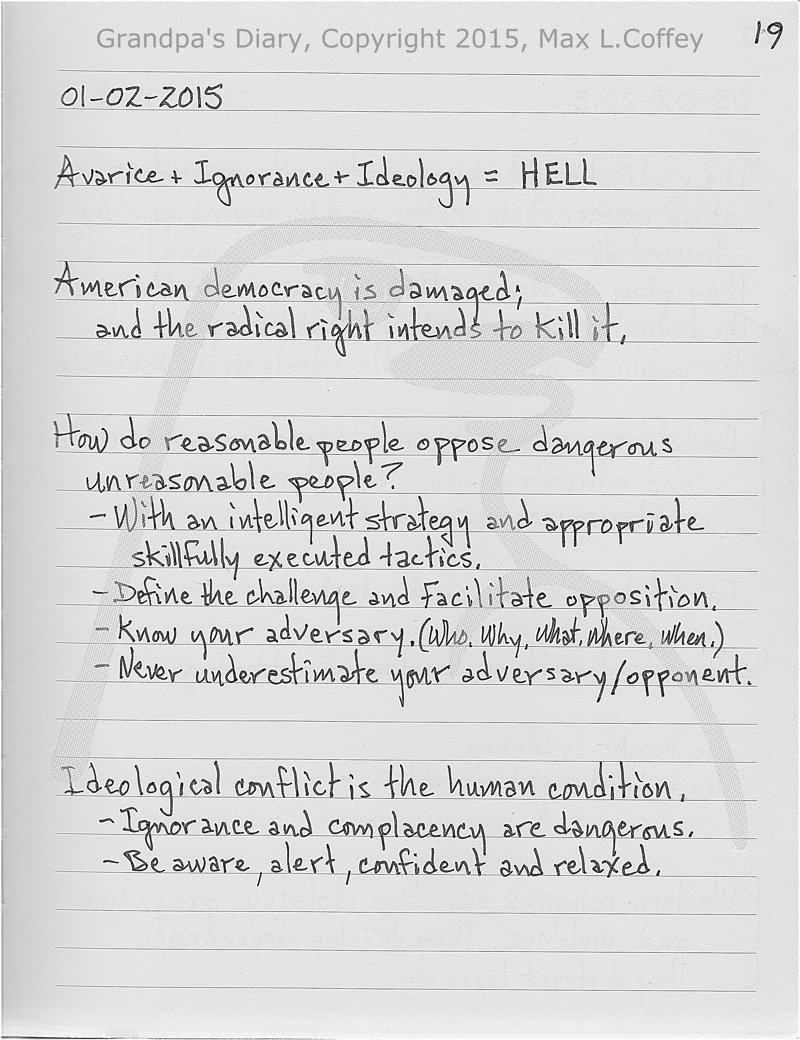 Grandpa's Diary, Copyright 2015, Max L.Coffey
19
01-02-2015
Avarice + Ignorance + Ideology = HELL
American democracy is damaged;
and the radical right intends to kill it.
How do reasonable people oppose dangerous
unreasonable people?
- With an intelligent strategy and appropriate
skillfully executed tactics.
- Define the challenge and facilitate opposition.
- Know your adversary. (Who, Why, What, Where, When.)
- Never underestimate your adversary/opponent.
Ideological conflict is the human condition.
- Ignorance and complacency are dangerous.
- Be aware, alert, confident and relaxed.